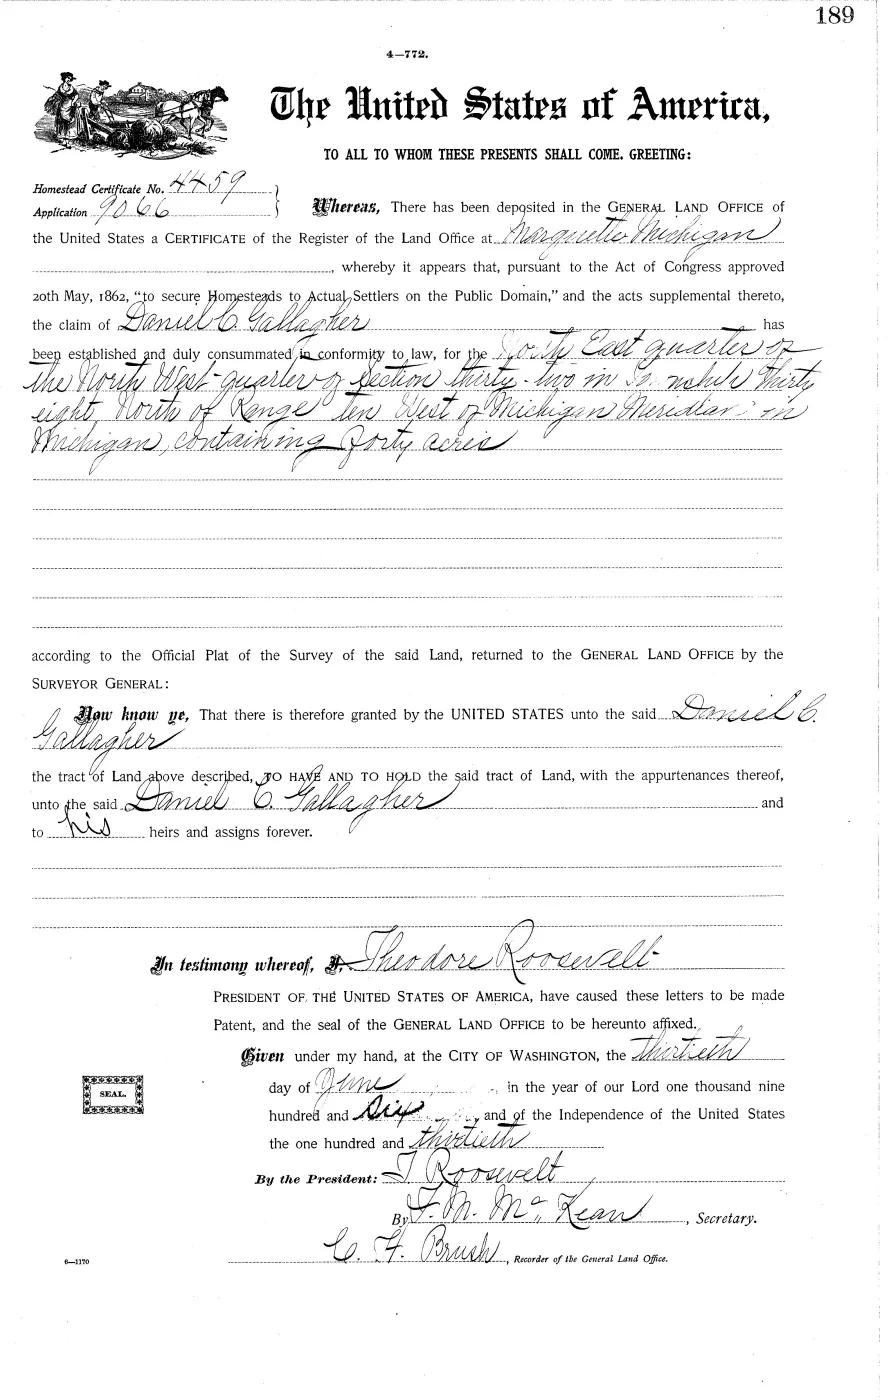 189
4—772.
The United States of America,
TO ALL TO WHOM THESE PRESENTS SHALL COME, GREETING:
Homestead Certificate No. 4459
Application 9066
Whereas, There has been deposited in the GENERAL LAND OFFICE of
the United States a CERTIFICATE of the Register of the Land Office at Marquette Michigan
, whereby it appears that, pursuant to the Act of Congress approved
20th May, 1862, "to secure Homesteads to Actual Settlers on the Public Domain," and the acts supplemental thereto,
the claim of Daniel C. Gallagher has
been established and duly consummated in conformity to law, for the North East quarter of
the North West quarter of Section thirty-two in Township Thirty
eight North of Range ten West of Michigan Meridian in
Michigan, containing forty acres
according to the Official Plat of the Survey of the said Land, returned to the GENERAL LAND OFFICE by the
SURVEYOR GENERAL:
Now know ye, That there is therefore granted by the UNITED STATES unto the said Daniel C.
Gallagher
the tract of Land above described, TO HAVE AND TO HOLD the said tract of Land, with the appurtenances thereof,
unto the said Daniel C. Gallagher and
to his heirs and assigns forever.
In testimony whereof, I, Theodore Roosevelt
PRESIDENT OF THE UNITED STATES OF AMERICA, have caused these letters to be made
Patent, and the seal of the GENERAL LAND OFFICE to be hereunto affixed.
Given under my hand, at the CITY OF WASHINGTON, the thirtieth
day of June, in the year of our Lord one thousand nine
SEAL.
hundred and Six, and of the Independence of the United States
the one hundred and thirtieth
By the President: T Roosevelt
By F. M. McKean, Secretary.
C. H. Brush, Recorder of the General Land Office.
6—1170